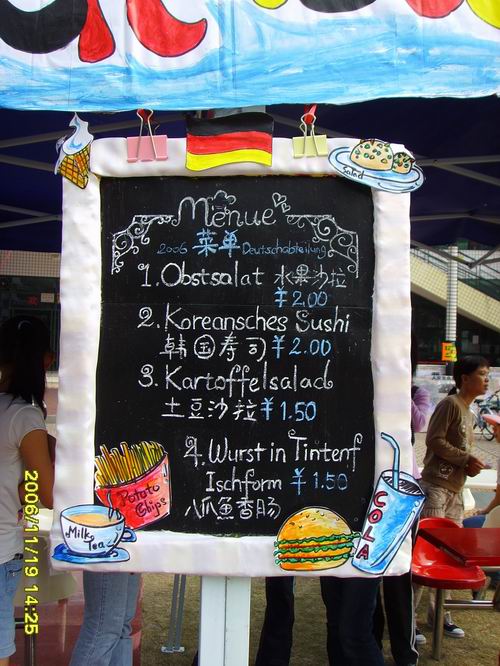 Menue
2006 菜单 Deutschabteilung
1. Obstsalat 水果沙拉
¥2.00
2. Koreansches Sushi
韩国寿司 ¥2.00
3. Kartoffelsalad
土豆沙拉 ¥1.50
4. Wurst in Tintenf
Ischform ¥1.50
八爪鱼香肠
Salad
Potato
Chips
Milky
Tea
COLA
2006/11/19 14:25